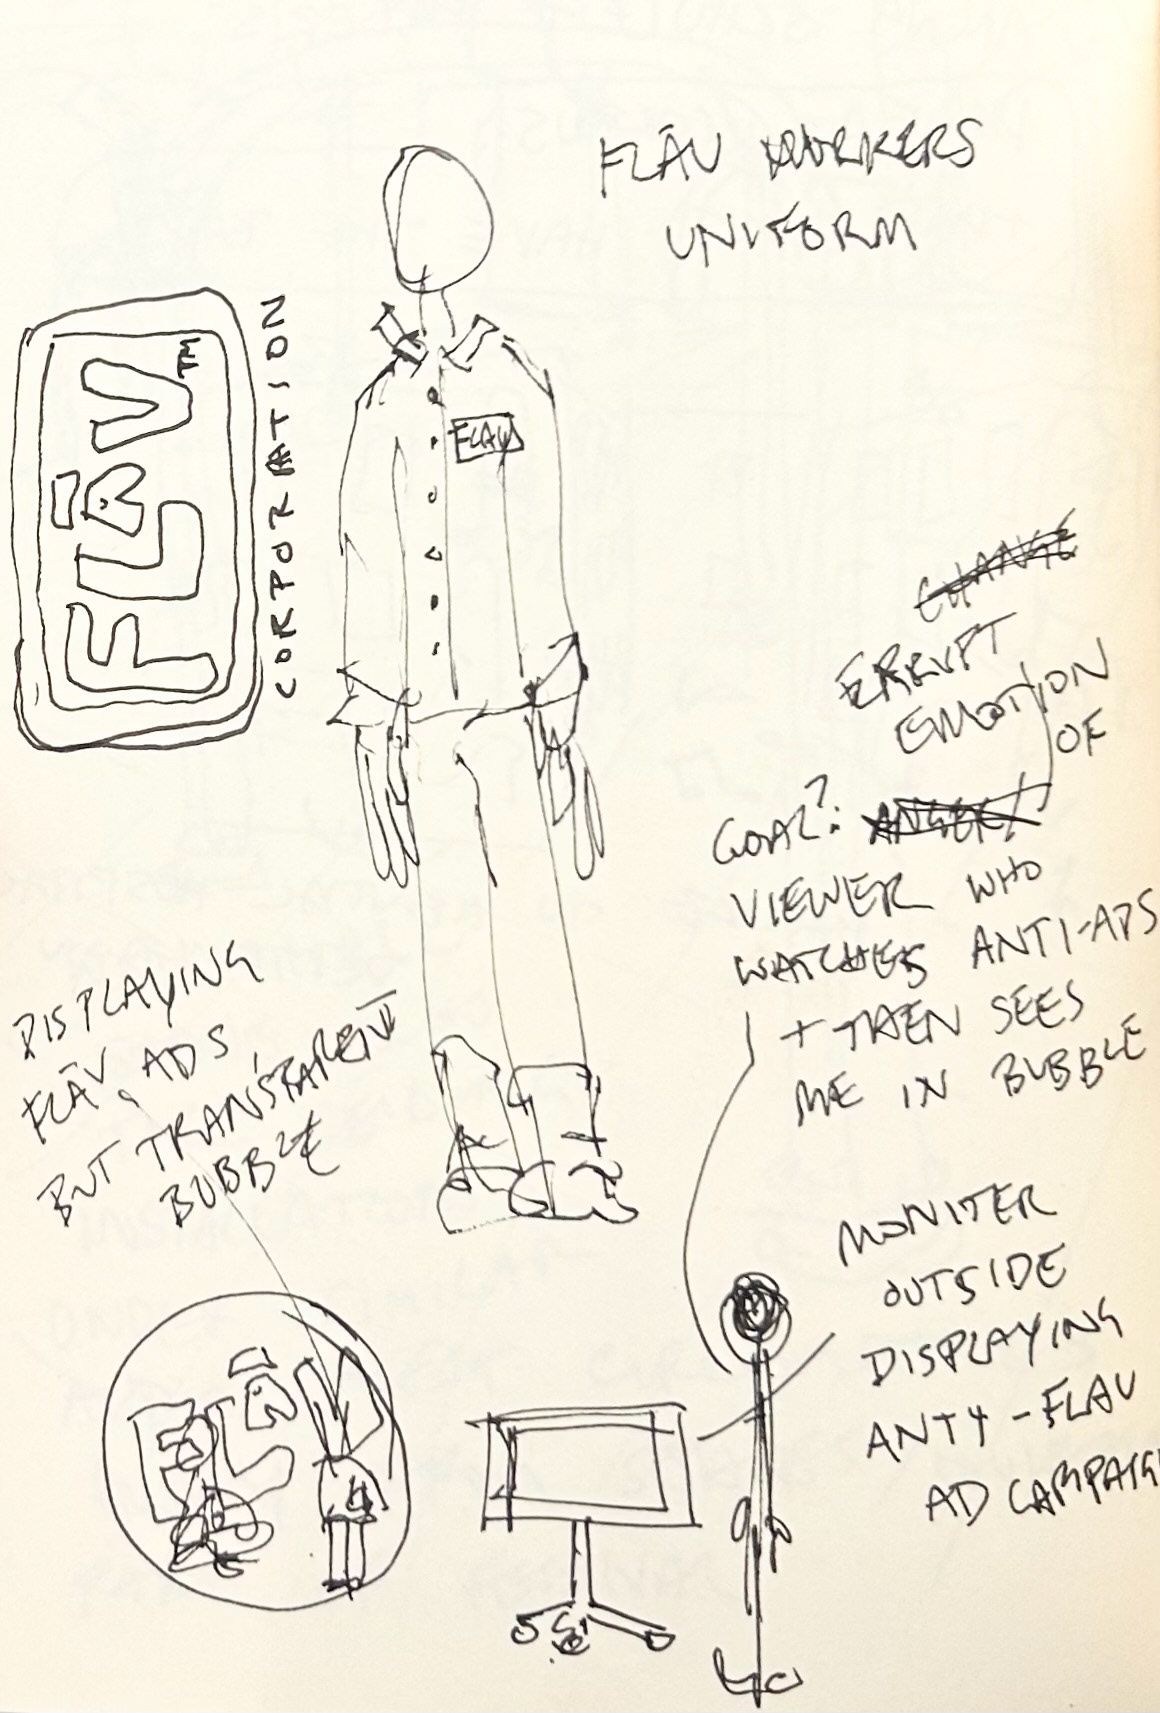 FLĀV WORKERS
UNIFORM
FLĀV™
CORPORATION
FLAV
CHANGE
ERRUPT
EMOTION
OF
GOAL?: ANGER
VIEWER WHO
WATCHES ANTI-ADS
+ THEN SEES
ME IN BUBBLE
DISPLAYING
FLĀV ADS
BUT TRANSPARENT
BUBBLE
MONITER
OUTSIDE
DISPLAYING
ANTY-FLAV
AD CAMPAIGN
FLĀV